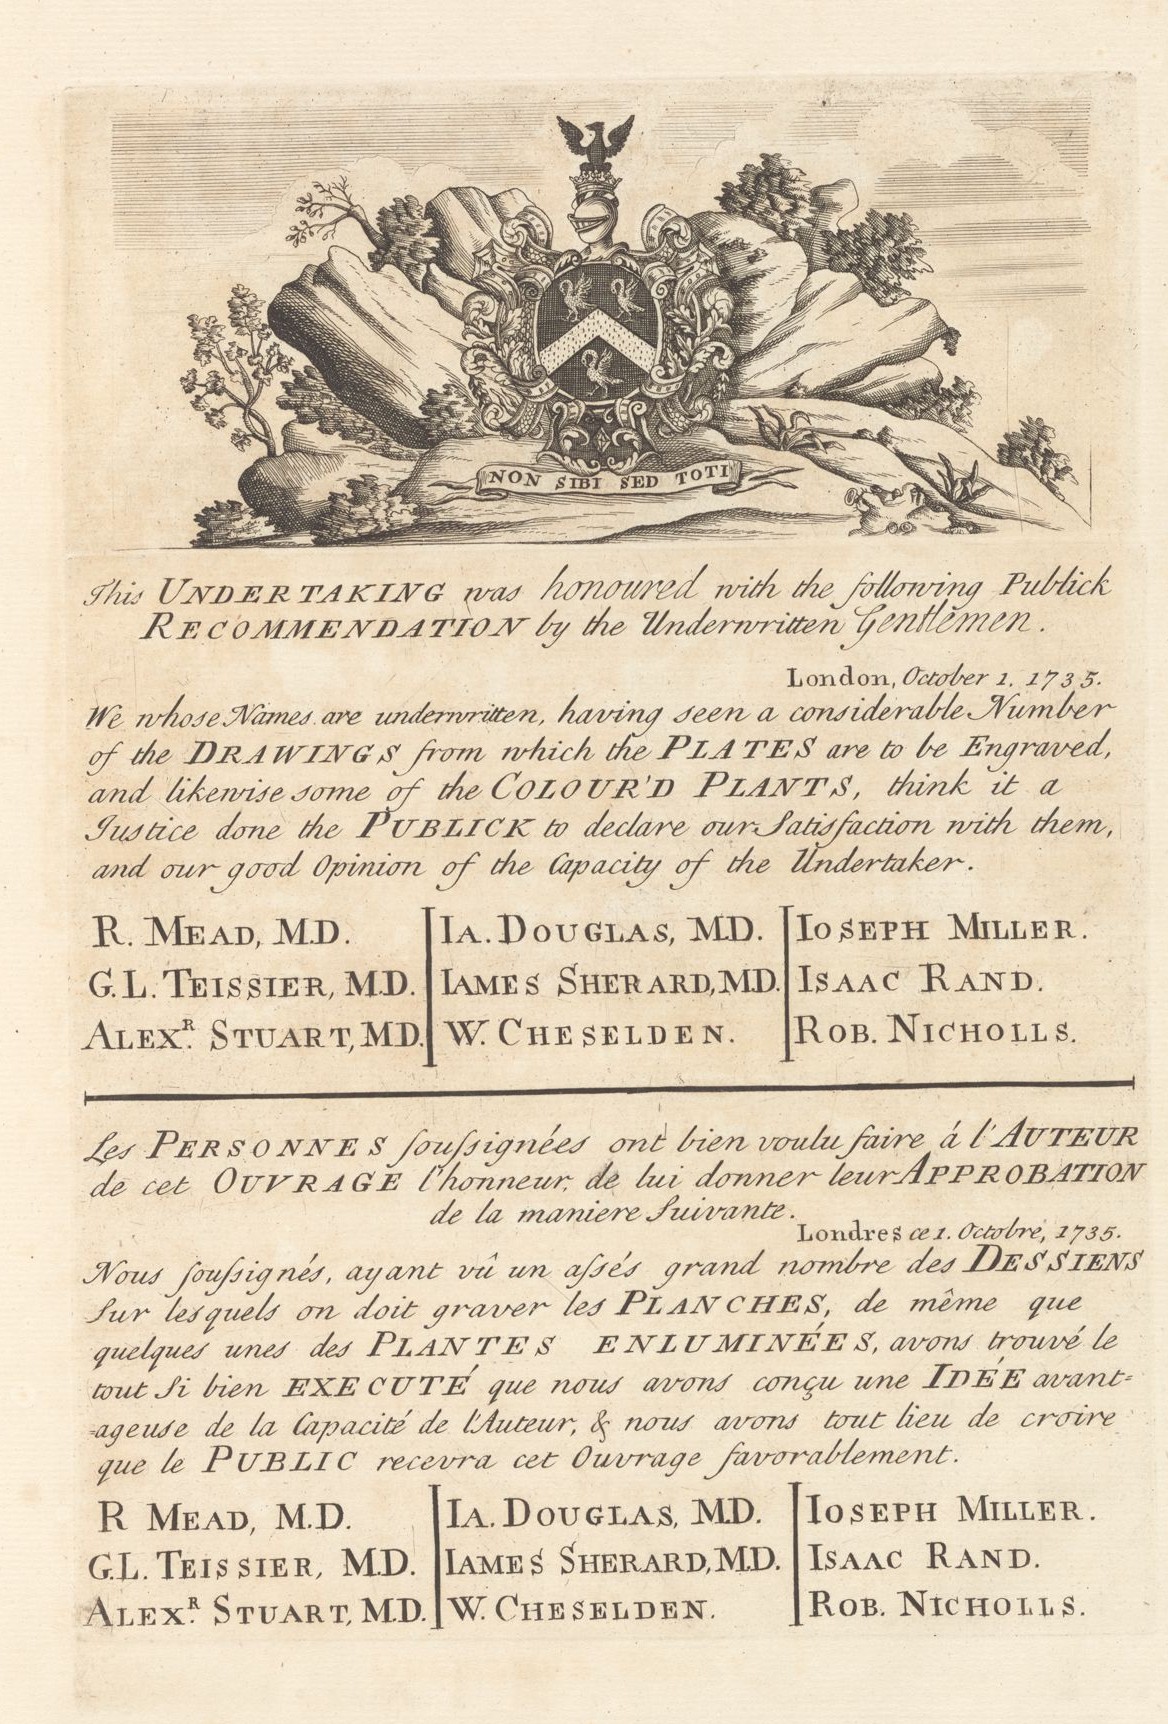 NON SIBI SED TOTI
This UNDERTAKING was honoured with the following Publick
RECOMMENDATION by the Underwritten Gentlemen.
London, October 1. 1735.
We whose Names are underwritten, having seen a considerable Number
of the DRAWINGS from which the PLATES are to be Engraved,
and likewise some of the COLOUR'D PLANTS, think it a
Justice done the PUBLICK to declare our Satisfaction with them,
and our good Opinion of the Capacity of the Undertaker.
R. MEAD, M.D. IA. DOUGLAS, M.D. IOSEPH MILLER.
G. L. TEISSIER, M.D. IAMES SHERARD, M.D. ISAAC RAND.
ALEXR. STUART, M.D. W. CHESELDEN. ROB. NICHOLLS.
Les PERSONNES souſsignées ont bien voulu faire á l'AUTEUR
de cet OUVRAGE l'honneur, de lui donner leur APPROBATION
de la maniere Suivante.
Londres ce 1. Octobre, 1735.
Nous ſouſsignés, ayant vû un aſsés grand nombre des DESSIENS
Sur lesquels on doit graver les PLANCHES, de même que
quelques unes des PLANTES ENLUMINÉES, avons trouvé le
tout Si bien EXECUTÉ que nous avons conçu une IDÉE avant=
=ageuse de la Capacité de l'Auteur, & nous avons tout lieu de croire
que le PUBLIC recevra cet Ouvrage favorablement.
R MEAD, M.D. IA. DOUGLAS, M.D. IOSEPH MILLER.
G.L. TEISSIER, M.D. IAMES SHERARD, M.D. ISAAC RAND.
ALEXR. STUART, M.D. W. CHESELDEN. ROB. NICHOLLS.